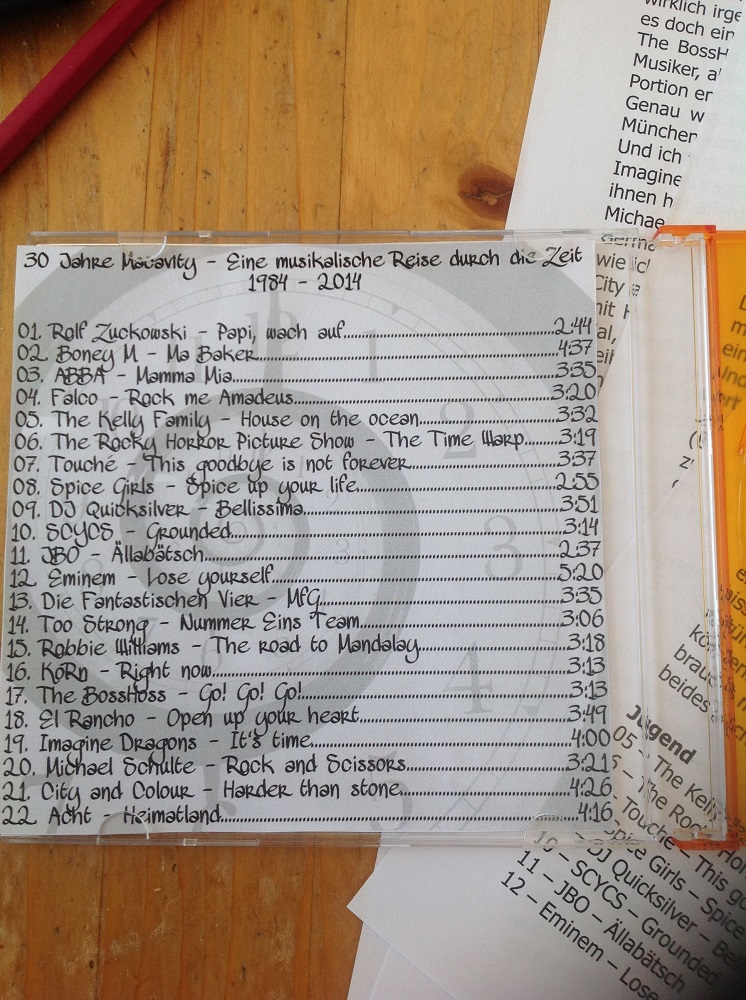 30 Jahre Macavity - Eine musikalische Reise durch die Zeit
1984 - 2014
01. Rolf Zuckowski - Papi, wach auf...2:44
02. Boney M - Ma Baker...4:37
03. ABBA - Mamma Mia...3:35
04. Falco - Rock me Amadeus...3:20
05. The Kelly Family - House on the ocean...3:32
06. The Rocky Horror Picture Show - The Time Warp...3:19
07. Touché - This goodbye is not forever...3:37
08. Spice Girls - Spice up your life...2:55
09. DJ Quicksilver - Bellissima...3:51
10. SCYCS - Grounded...3:14
11. JBO - Ällabätsch...2:37
12. Eminem - Lose yourself...5:20
13. Die Fantastischen Vier - MfG...3:35
14. Too Strong - Nummer Eins Team...3:06
15. Robbie Williams - The road to Mandalay...3:18
16. KoRn - Right now...3:13
17. The BossHoss - Go! Go! Go!...3:13
18. El Rancho - Open up your heart...3:49
19. Imagine Dragons - It's time...4:00
20. Michael Schulte - Rock and Scissors...3:21
21. City and Colour - Harder than stone...4:26
22. Acht - Heimatland...4:16
wirklich
es doch ein
The
Musiker,
Portion
Genau
München
Und ich
Imagine
ihnen
wie
City
beides
Jugend
05 - The
The
Touché - This
Spice Girls - Spice
DJ Quicksilver -
10 - SCYCS - Grounded
11 - JBO - Ällabätsch
12 - Eminem - Lose